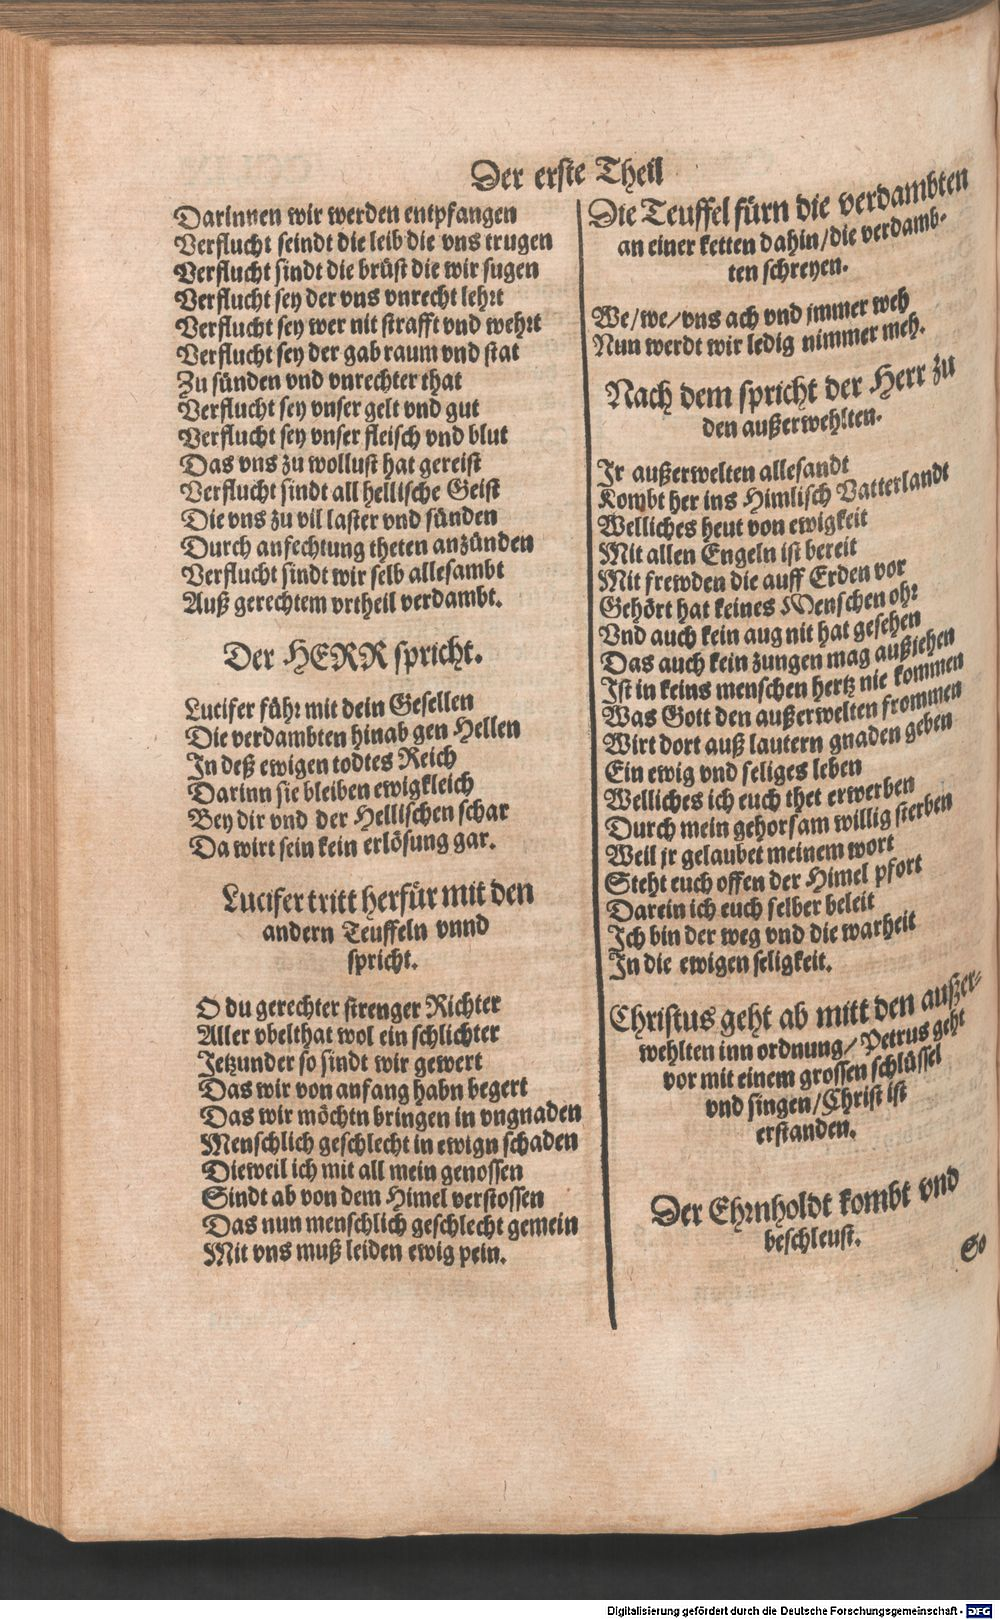 Der erste Theil
Darinnen wir werden entpfangen
Verflucht seindt die leib die vns trugen
Verflucht sindt die brüst die wir sugen
Verflucht sey der vns vnrecht lehrt
Verflucht sey wer nit strafft vnd wehrt
Verflucht sey der gab raum vnd stat
Zu sünden vnd vnrechter that
Verflucht sey vnser gelt vnd gut
Verflucht sey vnser fleisch vnd blut
Das vns zu wollust hat gereist
Verflucht sindt all hellische Geist
Die vns zu vil laster vnd sünden
Durch anfechtung theten anzünden
Verflucht sindt wir selb allesambt
Auß gerechtem vrtheil verdambt.
Der HERR spricht.
Lucifer führ mit dein Gesellen
Die verdambten hinab gen Hellen
In deß ewigen todtes Reich
Darinn sie bleiben ewigkleich
Bey dir vnd der Hellischen schar
Da wirt sein kein erlösung gar.
Lucifer tritt herfür mit den
andern Teuffeln vnnd
spricht.
O du gerechter strenger Richter
Aller vbelthat wol ein schlichter
Jetzunder so sindt wir gewert
Das wir von anfang habn begert
Das wir möchtn bringen in vngnaden
Menschlich geschlecht in ewign schaden
Dieweil ich mit all mein genossen
Sindt ab von dem Himel verstossen
Das nun menschlich geschlecht gemein
Mit vns muß leiden ewig pein.
Die Teuffel fürn die verdambten
an einer ketten dahin/die verdamb-
ten schreyen.
We/we/vns ach vnd jmmer weh
Nun werdt wir ledig nimmer meh.
Nach dem spricht der Herr zu
den außerwehlten.
Ir außerwelten allesandt
Kombt her ins Himlisch Vatterlandt
Welliches heut von ewigkeit
Mit allen Engeln ist bereit
Mit frewden die auff Erden vor
Gehört hat keines Menschen ohr
Vnd auch kein aug nit hat gesehen
Das auch kein zungen mag außjehen
Ist in keins menschen hertz nie kommen
Was Gott den außerwelten frommen
Wirt dort auß lautern gnaden geben
Ein ewig vnd seliges leben
Welliches ich euch thet erwerben
Durch mein gehorsam willig sterben
Weil jr gelaubet meinem wort
Steht euch offen der Himel pfort
Darein ich euch selber beleit
Ich bin der weg vnd die warheit
In die ewigen seligkeit.
Christus geht ab mitt den außer-
wehlten inn ordnung/Petrus geht
vor mit einem grossen schlüssel
vnd singen/Christ ist
erstanden.
Der Ehrnholdt kombt vnd
beschleust.
So
Digitalisierung gefördert durch die Deutsche Forschungsgemeinschaft - DFG